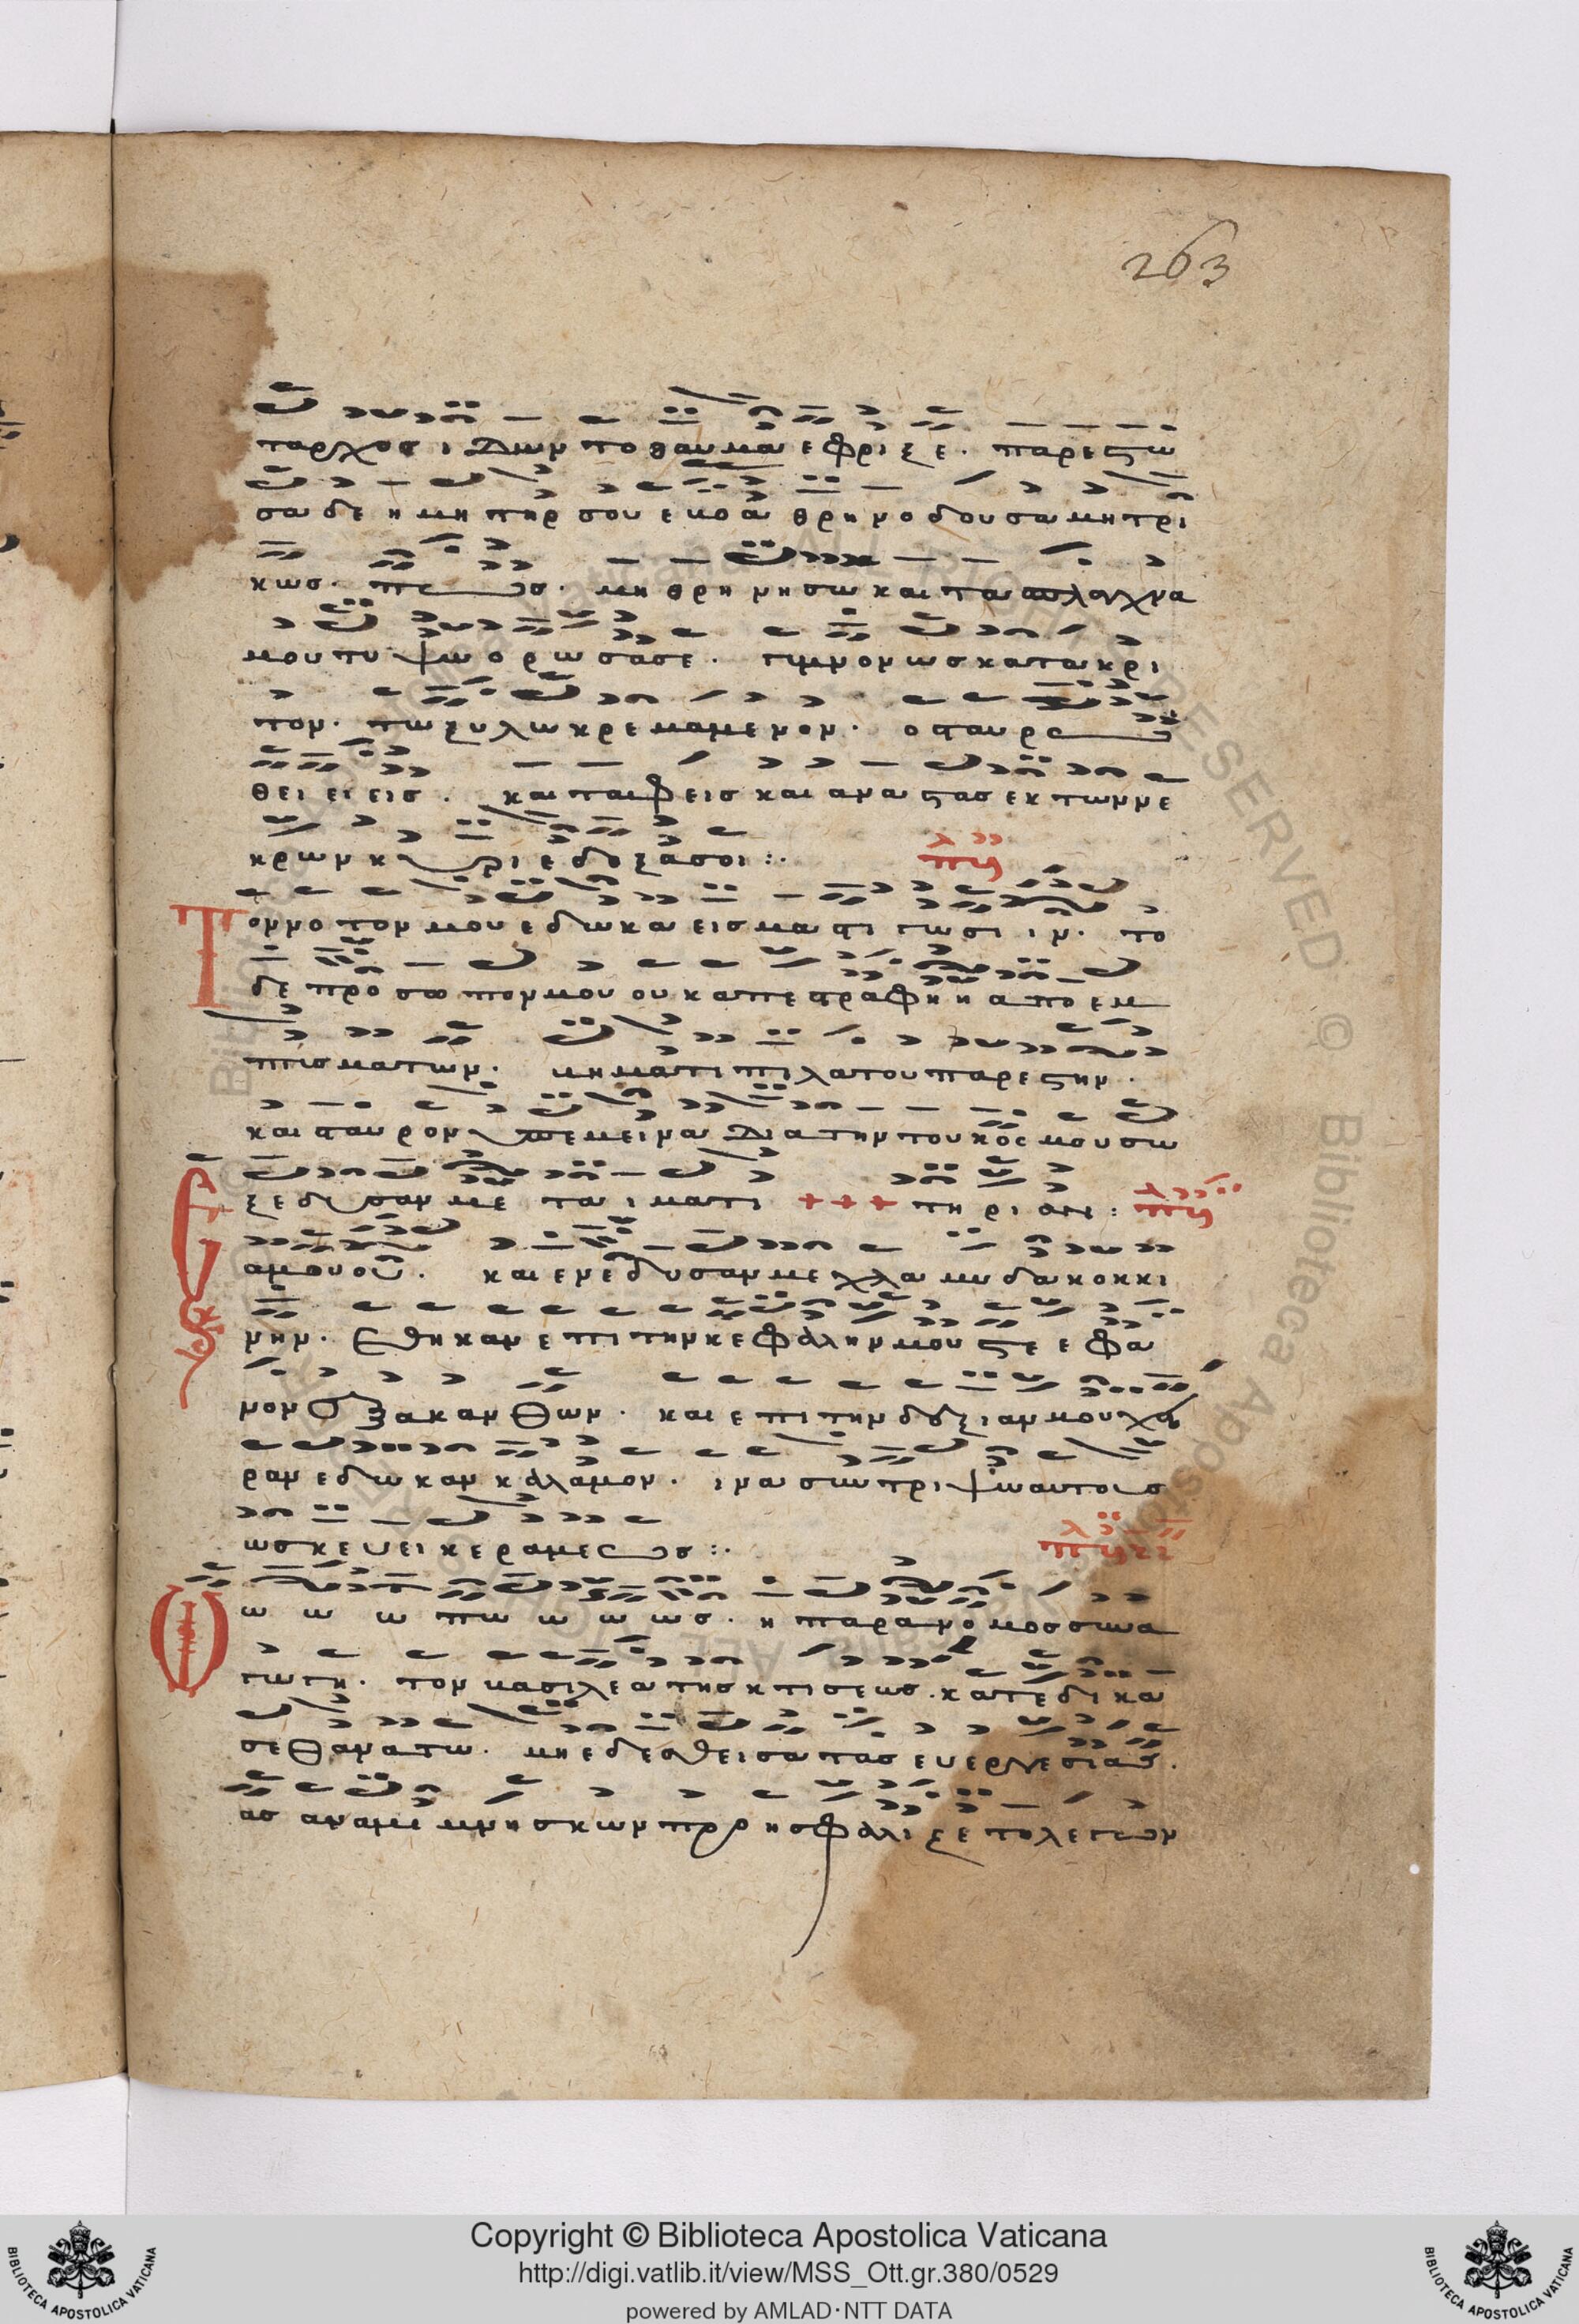 263
ταρχος ιδων το θαυμα εφριξε. παρεστω
σα δε η μητηρ σου εβοα θρηνοδουσα μητρι
κως. πως. μη θρηνησω και τα σπλαγχνα
μου τυψω ορωσα σε. γυμνον ως κατακρι
τον. πι ξυλω κρεμαμενον. ο σταυρω
θει ει εις. και ταφεις και αναστας εκ των νε
κρων κυριε δοξα σοι :.
Τον νοτον μου εδωκα εις μαστιγωσι ιν. το
δε προσωπον μου ουκ απεστραφη η απο εμ
πτυσματων. βηματι πιλατου παρεστην.
και σταυρον υπεμεινα δια την του κοσμου σω
ξεδυσαν με τα ιματι + + + τηριαν :
α μου ου. και ενεδυσαν με χλαμυδα κοκκι
νην. εθηκαν επι την κεφαλην μου στε εφα
νον εξ ακανθων. και επι την δεξιαν μου χει
ραν εδωκαν καλαμον. ινα συντριψω αυτους
ως σκευει κεραμεως :.
ω ω ω πω ω ω ως. η παρανομος συνα
γωγη. τον βασιλεα της κτισεως. κατεδικα
σε θανατω. μη εδεσθεισα τας ευεργεσιας.
ας αναμιμνησκων προησφαλιζετο λεγων
Copyright © Biblioteca Apostolica Vaticana
http://digi.vatlib.it/view/MSS_Ott.gr.380/0529
powered by AMLAD·NTT DATA